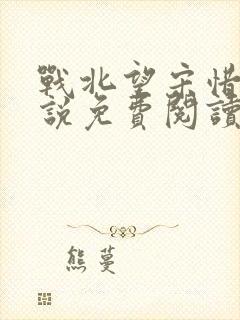 戰北望宋惜
說免費閱讀
熊蔓